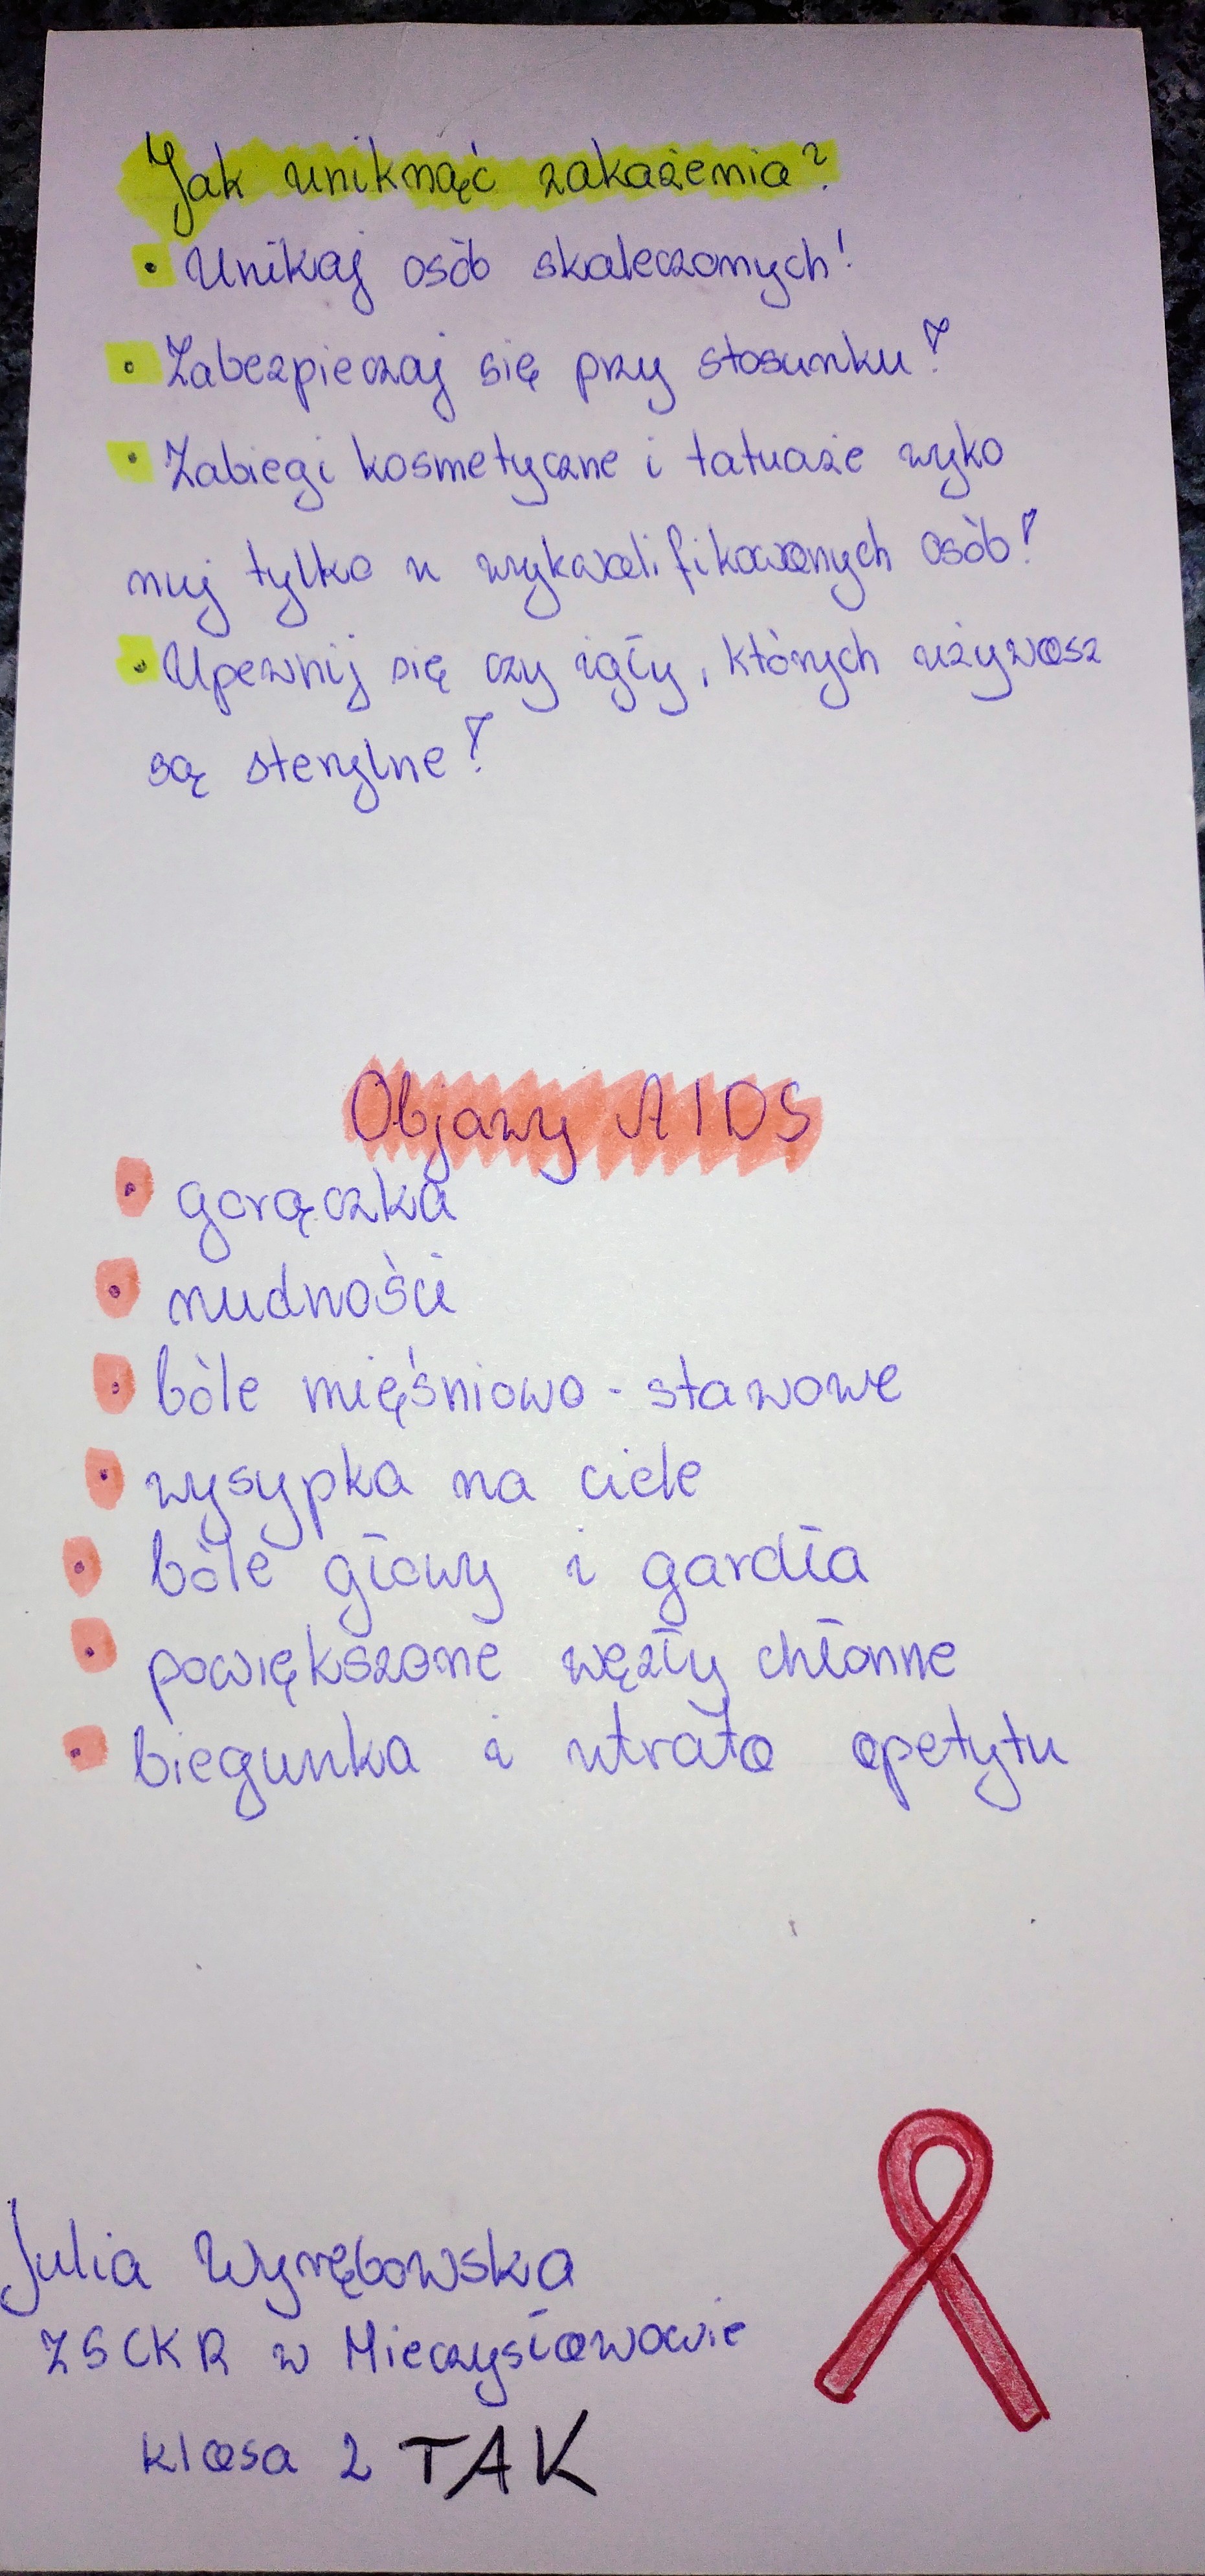 Jak uniknąć zakażenia?
• Unikaj osób skaleczonych!
• Zabezpieczaj się przy stosunku!
• Zabiegi kosmetyczne i tatuaże wyko
nuj tylko u wykwalifikowanych osób!
• Upewnij się czy igły, których używasz
są sterylne!
Objawy AIDS
• gorączka
• nudności
• bóle mięśniowo-stawowe
• wysypka na ciele
• bóle głowy i gardła
• powiększone węzły chłonne
• biegunka i utrata apetytu
Julia Wyrębowska
ZSCKR w Mieczysławowie
klasa 2 TAK